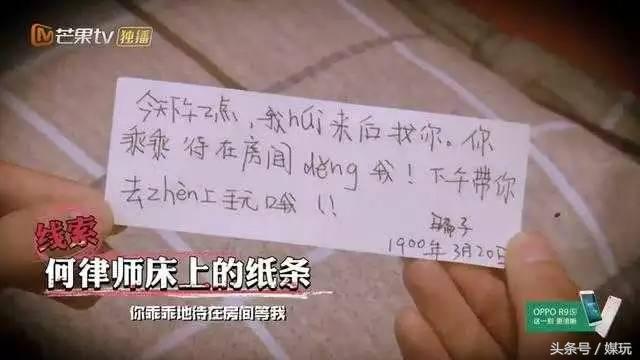 芒果tv 独播
今天下午2点，我húi来后找你。你
乖乖待在房间děng我！下午带你
去zhèn上玩哦!!
骗子
1900年3月20日
线索
何律师床上的纸条
你乖乖地待在房间等我
OPPO R9s
这一刻 更清晰
头条号/媒玩